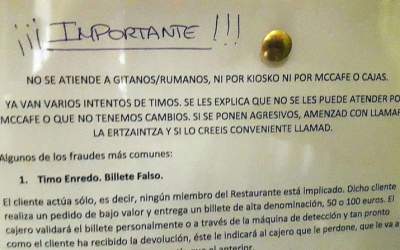 ¡¡¡ IMPORTANTE !!!
NO SE ATIENDE A GITANOS/RUMANOS, NI POR KIOSKO NI POR MCCAFE O CAJAS.
YA VAN VARIOS INTENTOS DE TIMOS. SE LES EXPLICA QUE NO SE LES PUEDE ATENDER PO
MCCAFE O QUE NO TENEMOS CAMBIOS. SI SE PONEN AGRESIVOS, AMENZAD CON LLAMA
LA ERTZAINTZA Y SI LO CREEIS CONVENIENTE LLAMAD.
Algunos de los fraudes más comunes:
1. Timo Enredo. Billete Falso.
El cliente actúa sólo, es decir, ningún miembro del Restaurante está implicado. Dicho cliente
realiza un pedido de bajo valor y entrega un billete de alta denominación, 50 o 100 euros. El
cajero validará el billete personalmente o a través de la máquina de detección y tan pronto
como el cliente ha recibido la devolución, éste le indicará al cajero que le perdone, que le va a
anterior.